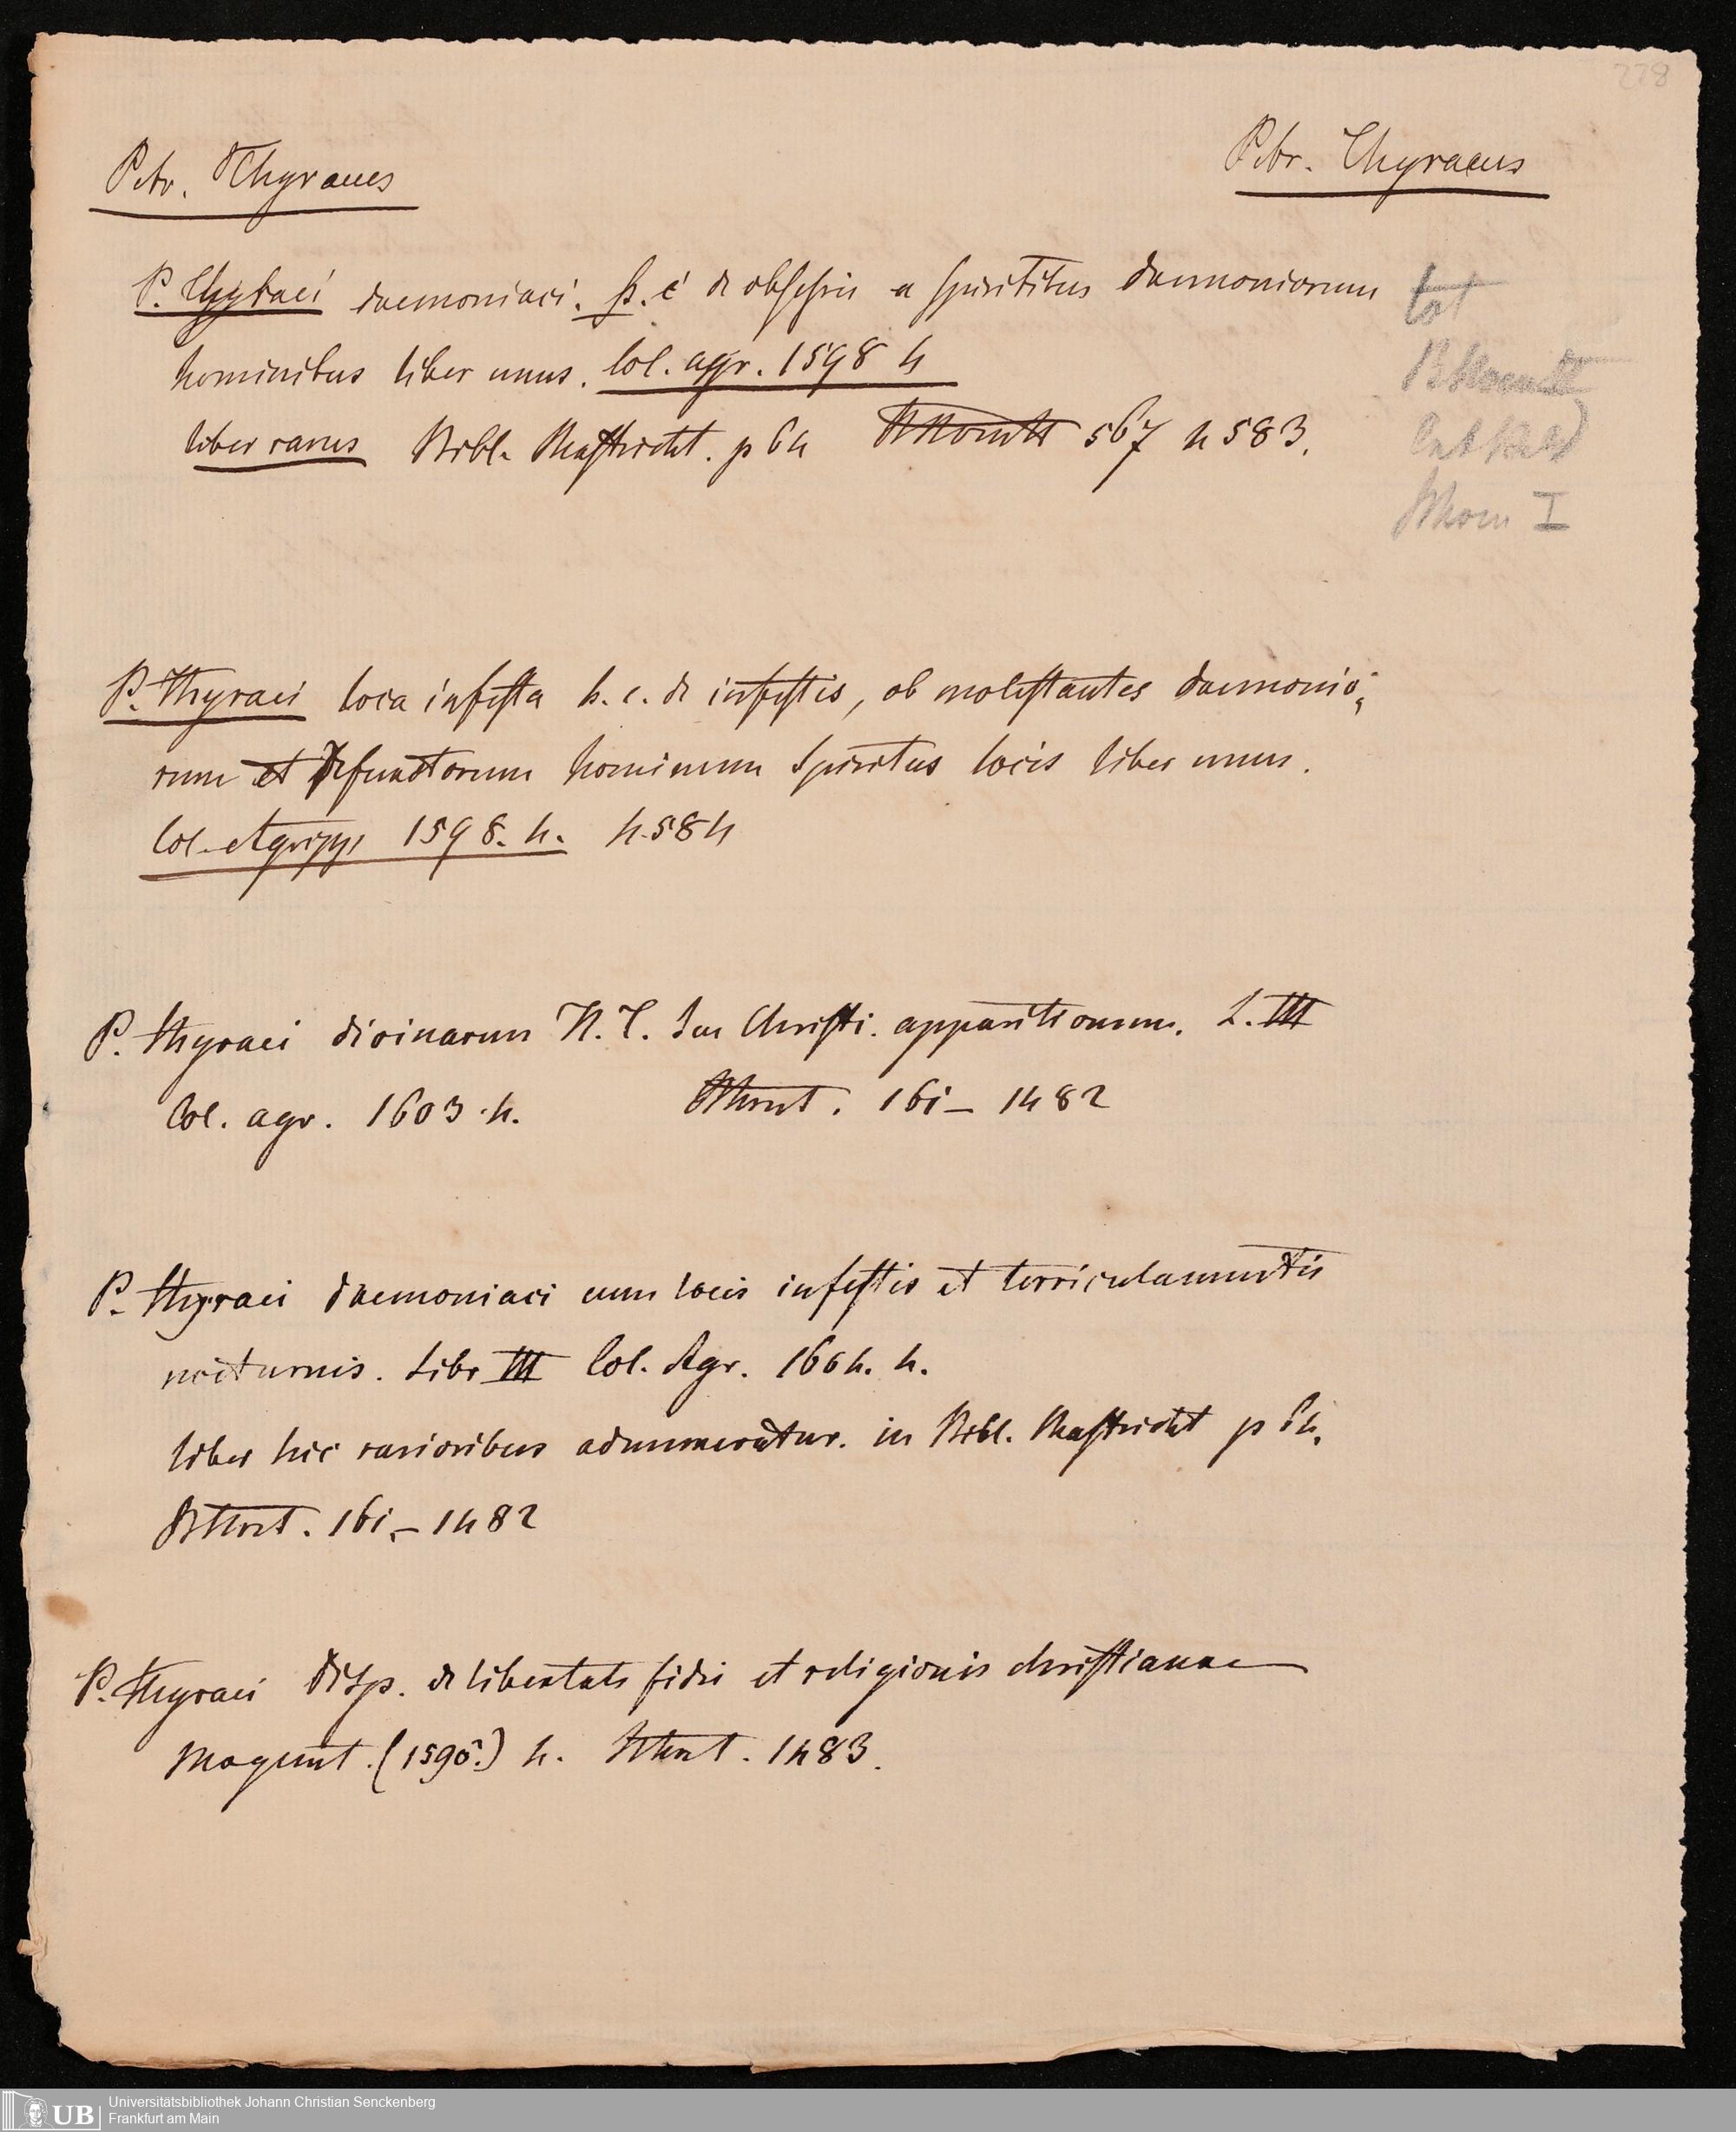 228
Petr. Thyraeus
Petr. Thyraeus
P. Thyraei daemoniaci. h. e de obsessis a spiritibus daemoniorum
hominibus liber unus. Col. agr. 1598 4
liber rarus Bibl. Mastricht. p 64 567 4583.
P. Thyraei loca infesta h. e. de infestis, ob molestantes daemonio-
rum et defunctorum hominum spiritus locis liber unus.
Col. Agripp 1598. 4. 4584
P. Thyraei divinarum N. T. seu Christi. apparitionum. L. III
Col. agr. 1603. 4. 161 – 1482
P. Thyraei daemoniaci cum locis infestis et terriculamentis
nocturnis. Libr III Col. Agr. 1604. 4.
liber hic rarioribus adnumeratur. in Bibl. Mastricht p 64.
161 – 1482
P. Thyraei Disp. de libertate fidei et religionis christianae
Mogunt. (1590.) 4. 1483.
Universitätsbibliothek Johann Christian Senckenberg
Frankfurt am Main
UB